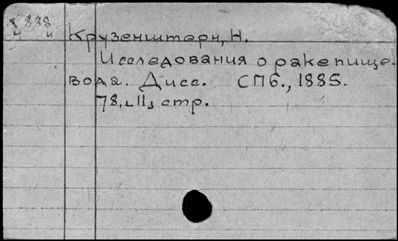 Крузенштерн, Н.
Исследования о раке пище-
вода. Дисс. СПб., 1885.
78, [II] стр.